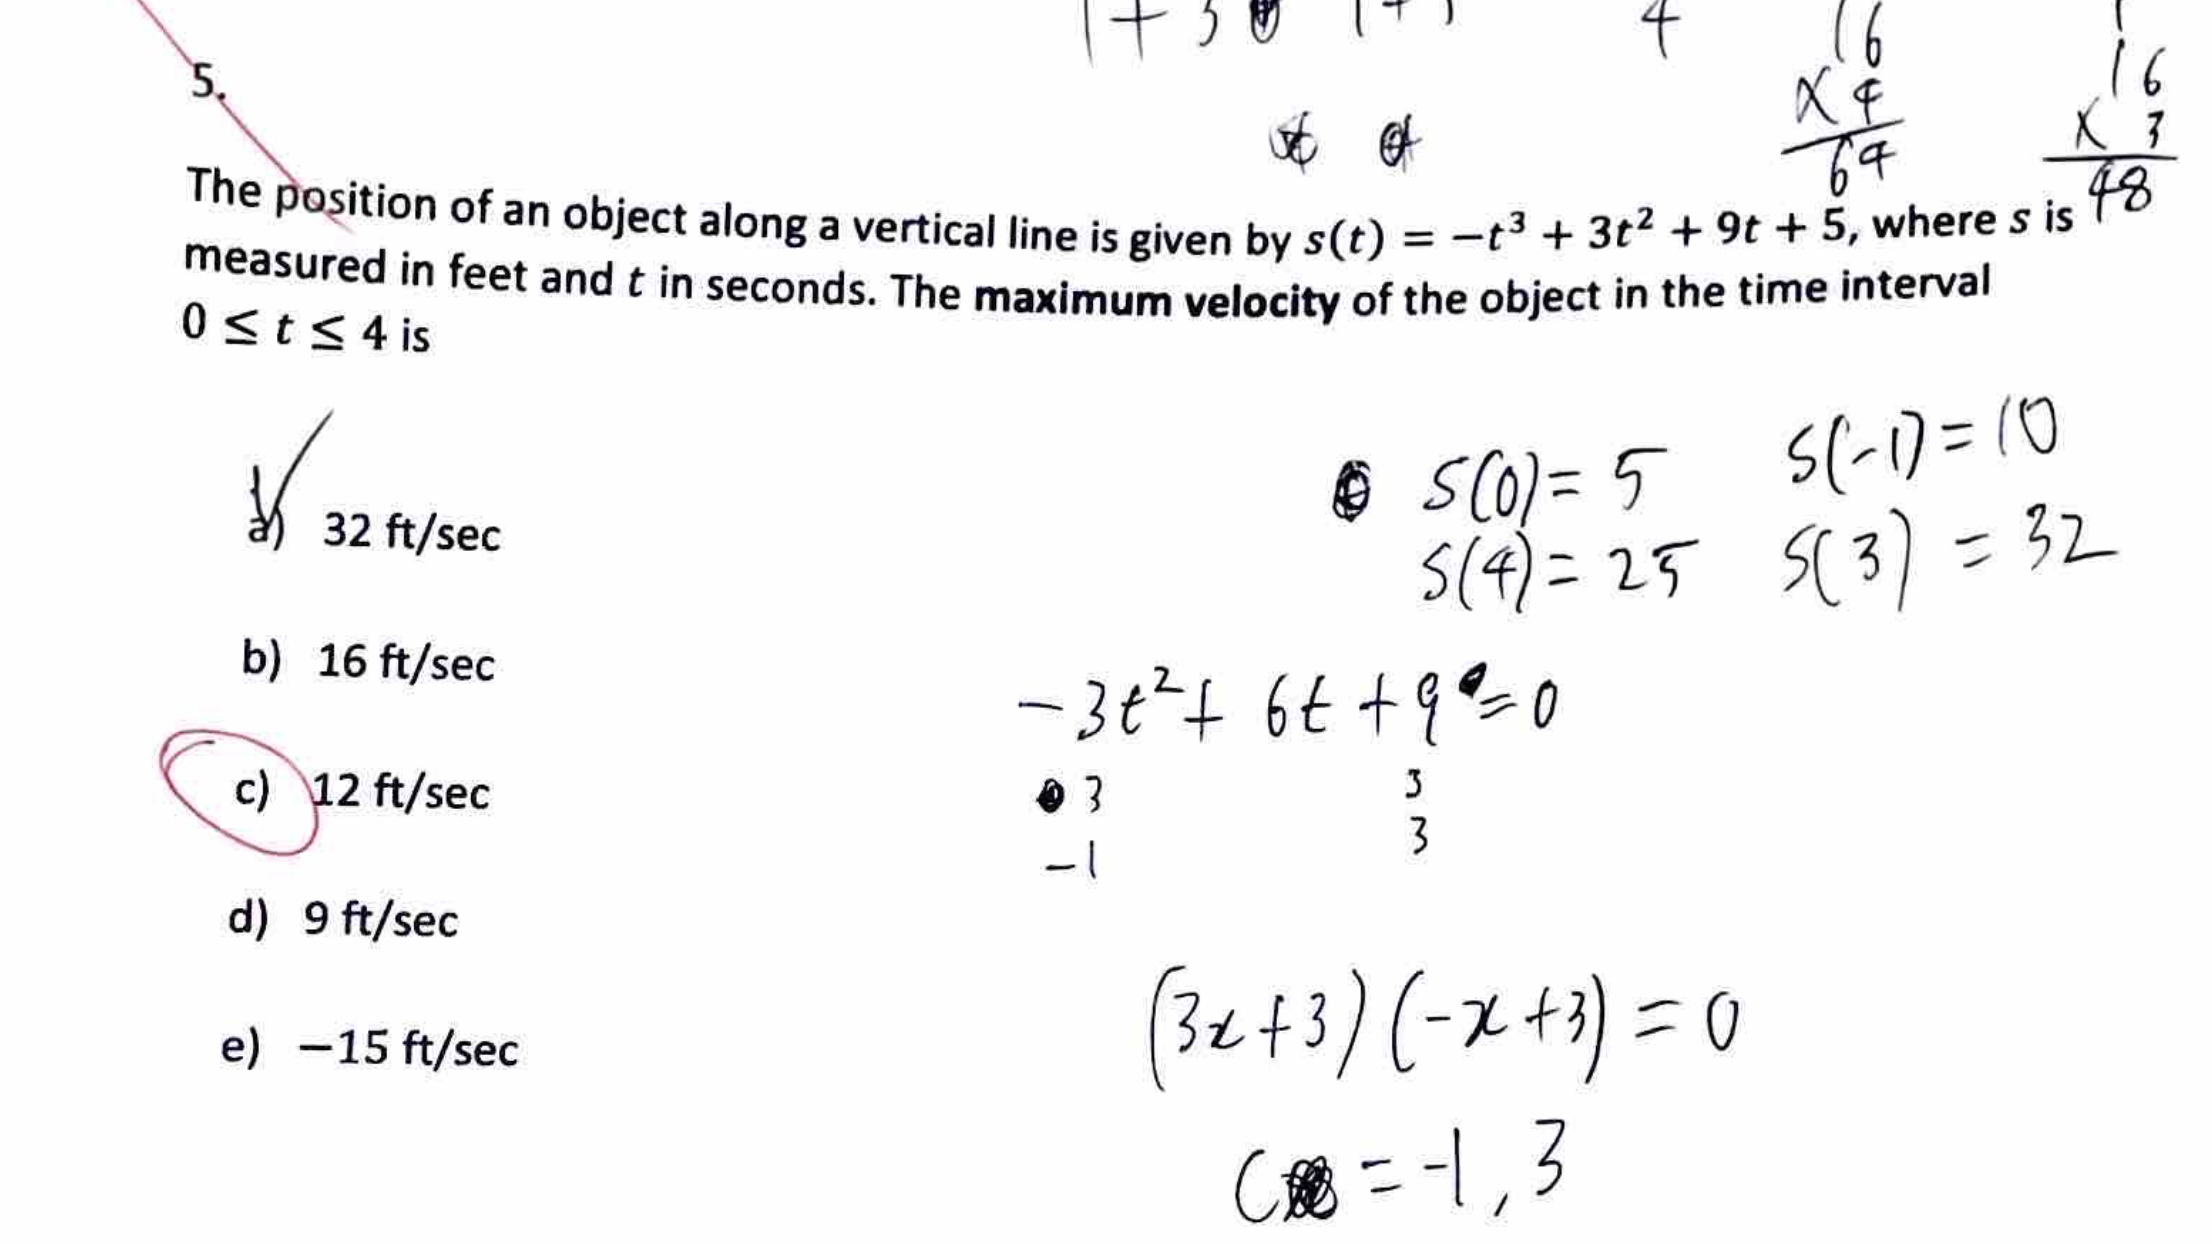 4
16
× 4
64
1
16
× 3
48
5.
The position of an object along a vertical line is given by s(t) = −t³ + 3t² + 9t + 5, where s is
measured in feet and t in seconds. The maximum velocity of the object in the time interval
0 ≤ t ≤ 4 is
a) 32 ft/sec
b) 16 ft/sec
c) 12 ft/sec
d) 9 ft/sec
e) −15 ft/sec
s(0) = 5 s(-1) = 10
s(4) = 25 s(3) = 32
-3t² + 6t + 9 = 0
3 3
-1 3
(3x+3)(-x+3) = 0
C = -1, 3